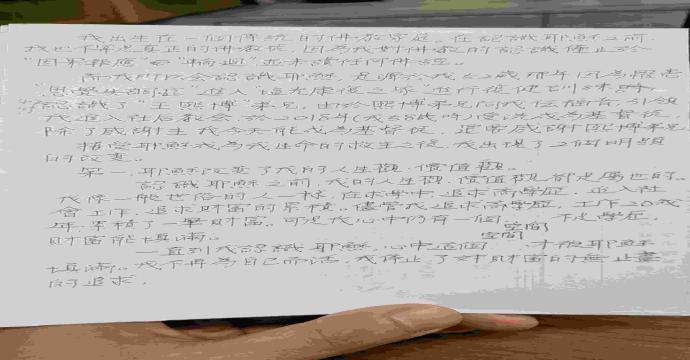 我出生在一個傳統的佛教家庭，在認識耶穌之前，
我也不算是真正的佛教徒，因為我對佛教的認識停止於
"因果報應"和"輪迴"，並未讀任何佛經。
而我所以會認識耶穌，是源於我52歲那年因為罹患
進入"陽光康復之家"進行復健訓練時，
認識了"王熙博"弟兄，由於熙博弟兄向我傳福音，引領
我進入社后教会，於2018年(我58歲時)受洗成為基督徒，
除了感謝主我今天能成為基督徒，還要感謝熙博弟兄
接受耶穌成為我生命的救主之後，我出現了2個明顯
的改變。
第一，耶穌改變了我的人生觀，價值觀。
認識耶穌之前，我的人生觀，價值觀都是屬世的。
我像一般世俗的人一樣，在求學中，追求高學歷，進入社
會工作，追求財富的累積。儘管我追求高學歷，工作20我
年，累積了一筆財富。可是我心中仍有一個空間，不是學歷，
財富能填滿。
一直到我認識耶穌，心中這個空間，才被耶穌
填滿。我不再為自己而活，我停止了對財富的無止盡
的追求，